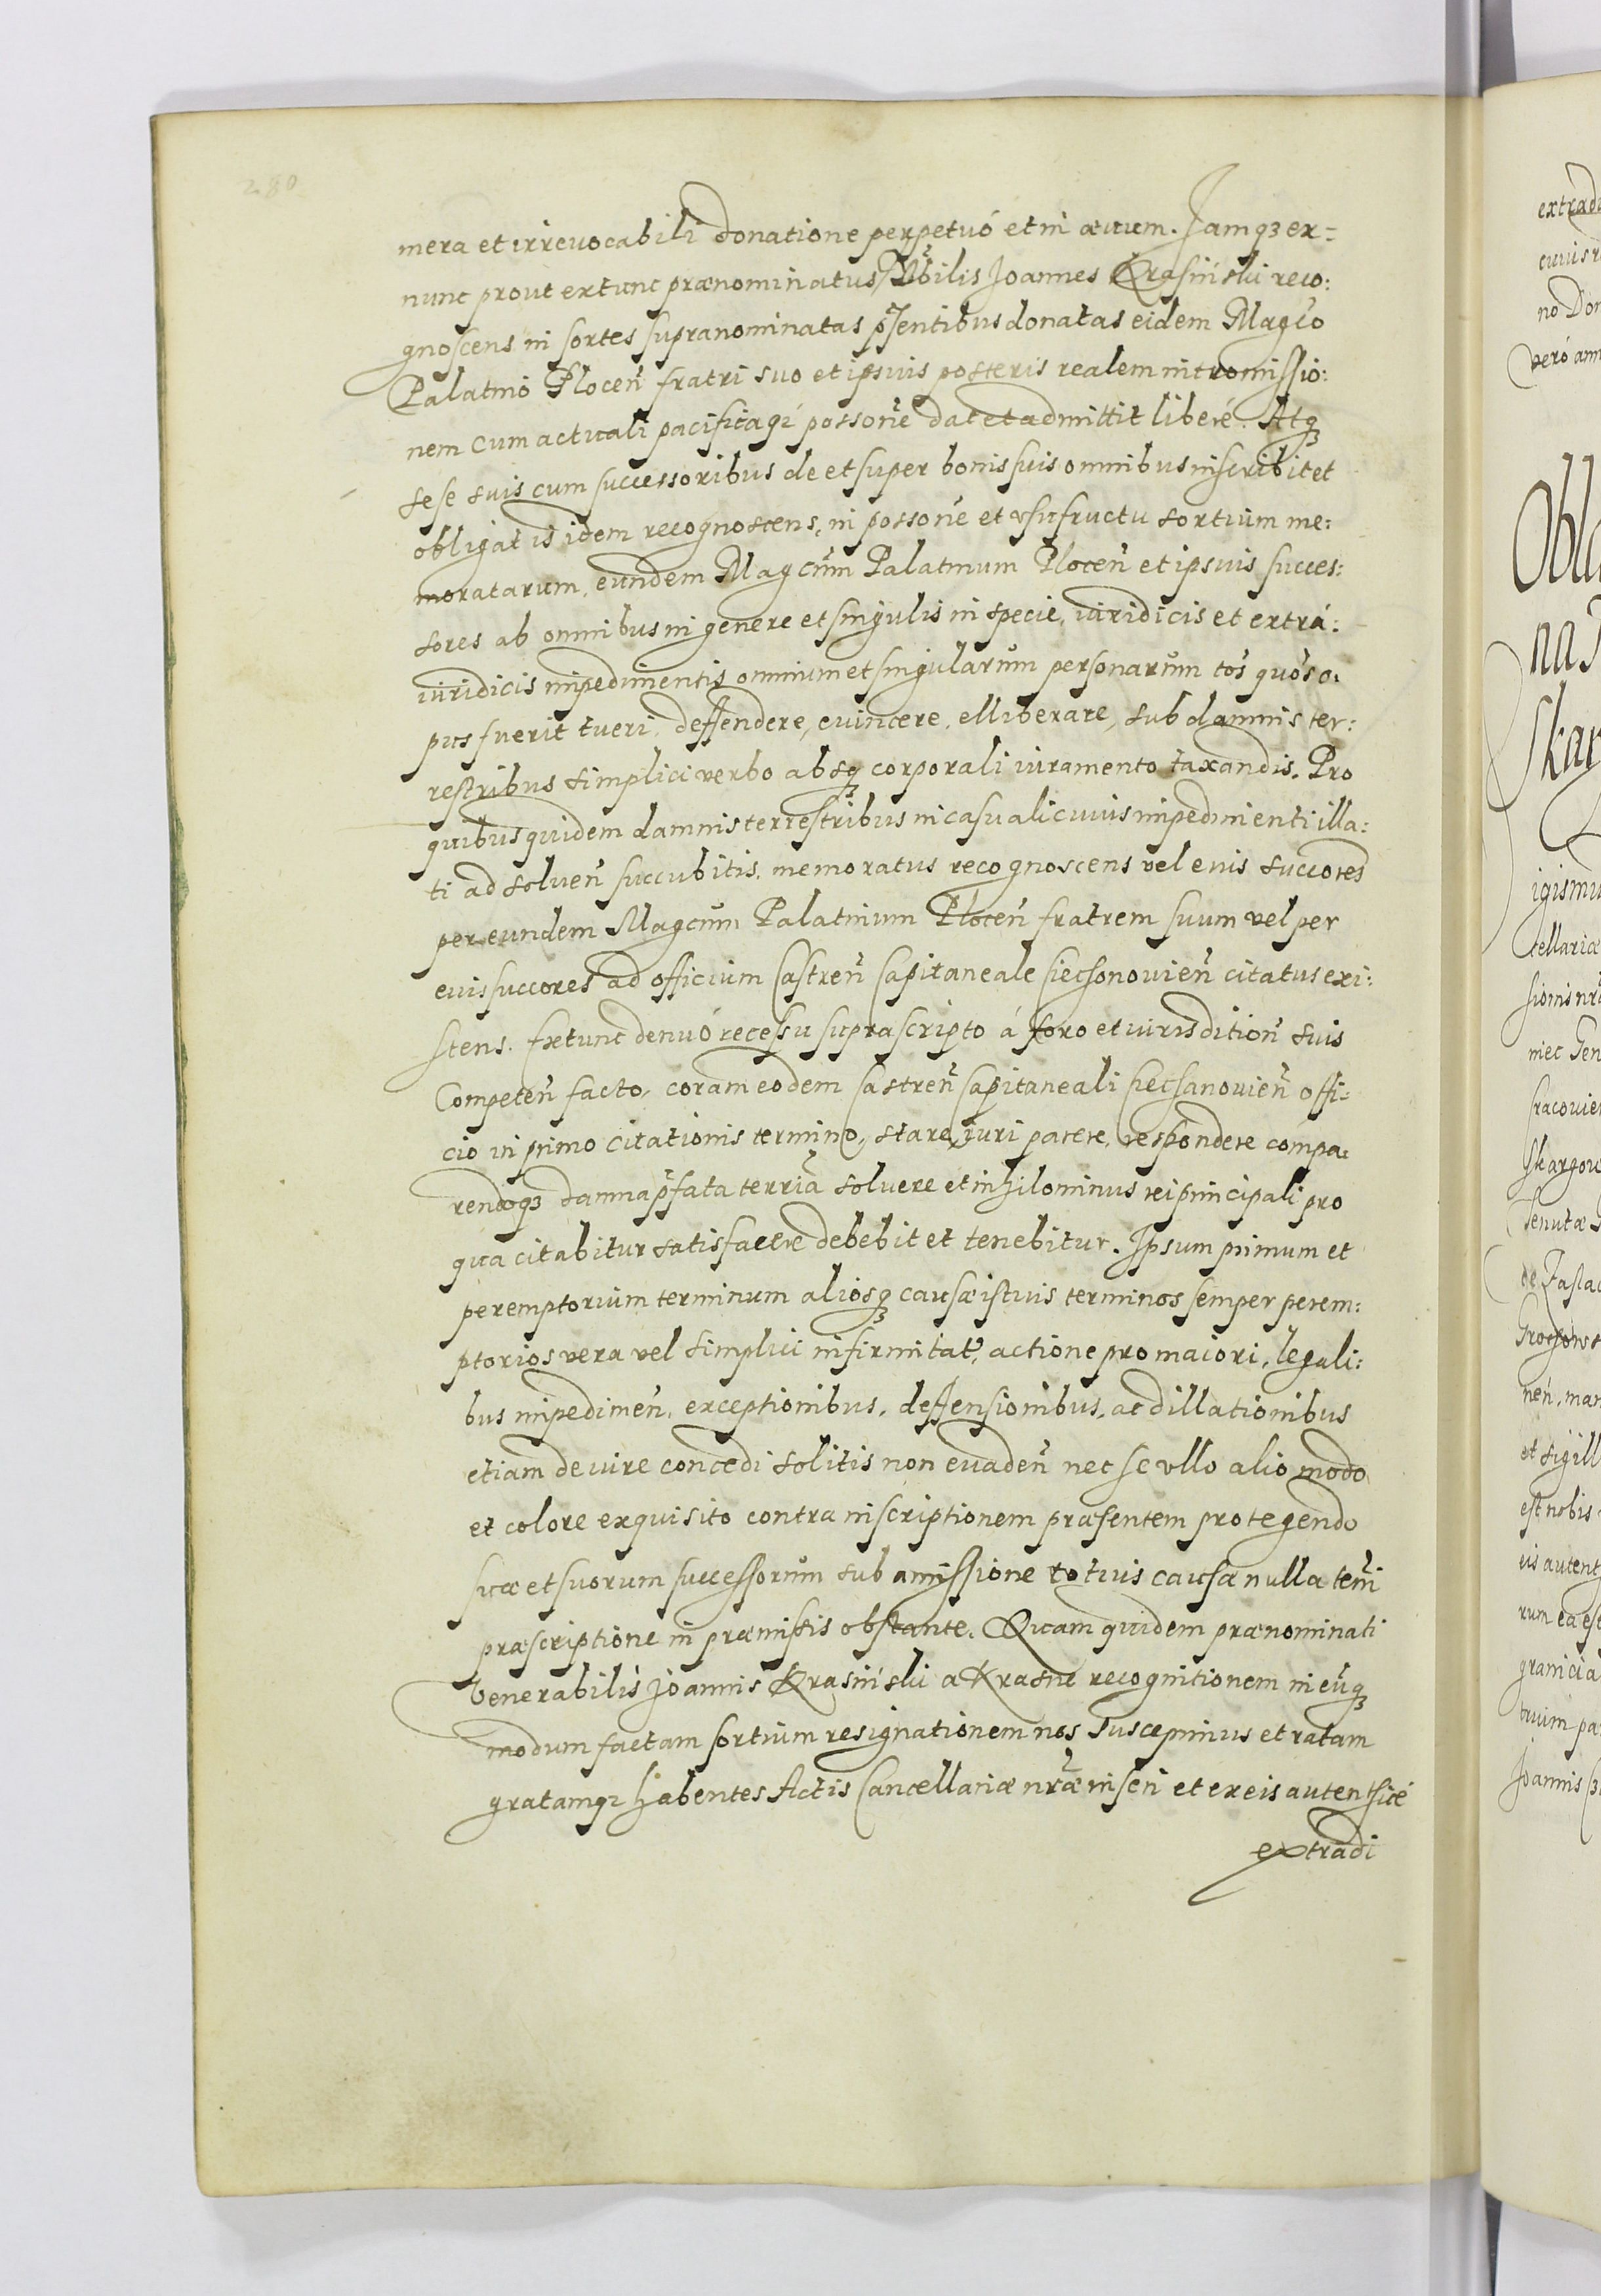 280
mera et irreuocabili donatione perpetuó et in æuum. Jamqz ex=
nunc prout extunc prænominatus Vbilis Joannes Krasiński reco:
gnoscens in sortes supranominatas pńsentibus donatas eidem Magco
Palatino Plocen̄ fratri suo et ipsius posteris realem intromissio:
nem cum actuali pacificaqz possone dat et admittit liberé. Atqz
sese suis cum successoribus de et super bonis suis omnibus inscribit et
obligat is idem recognoscens, in possone et vsufructu sortium me:
moratarum, eundem Magcum Palatinum Plocen̄ et ipsius succes:
sores ab omnibus in genere et singulis in specie, iuridicis et extrá:
iuridicis impedimentis omnium et singularum personarum tos quos o:
pus fuerit tueri, deffendere, euincere, elliberare, sub damnis ter:
restribus simplici verbo absqz corporali iuramento taxandis. Pro
quibus quidem damnis terrestribus in casu alicuius impedimenti illa:
ti ad soluen̄ succubitis, memoratus recognoscens vel eius succores
per eundem Magcum Palatinum Plocen̄ fratrem suum vel per
eius succores ad officium Castren̄ Capitaneale Ciechonouien̄ citatus exi:
stens. Extunc denuó recessu suprascripto á foro et iurisdition̄ suis
Competen̄ facto, coram eodem Castren̄ Capitaneali Ciechanouien̄ offi:
cio in primo citationis termino, stare, iuri parere, respondere compa:
rendoqz damna pfata terria soluere et nihilominus rei principali pro
qua citabitur satisfacere debebit et tenebitur. Ipsum primum et
peremptorium terminum aliosqz causæ istius terminos semper perem:
ptorios vera vel simplici infirmitate, actione pro maiori, legali:
bus impedimen̄, exceptionibus, deffensionibus, ac dillationibus
etiam de iure concedi solitis non euaden̄ nec se vllo alio modo
et colore exquisito contra inscriptionem præsentem protegendo
suæ et suorum successorum sub amissione totius causæ nulla terri
præscriptione in præmissis obstante. Quam quidem prænominati
Venerabilis Joannis Krasiński a Krasne recognitionem in eūqz
modum factam sortium resignationem nos suscepimus et ratam
gratamqz habentes Actis Cancellariæ nræ inseri et ex eis autenthicé
extradi